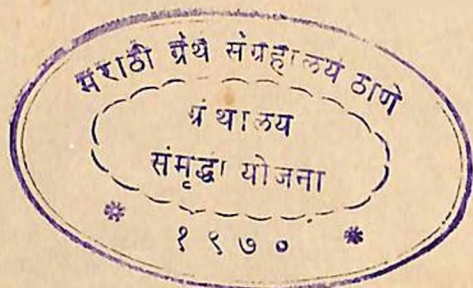 मराठी ग्रंथ संग्रहालय ठाणे
ग्रंथालय
संमृद्धा योजना
* १९७० *